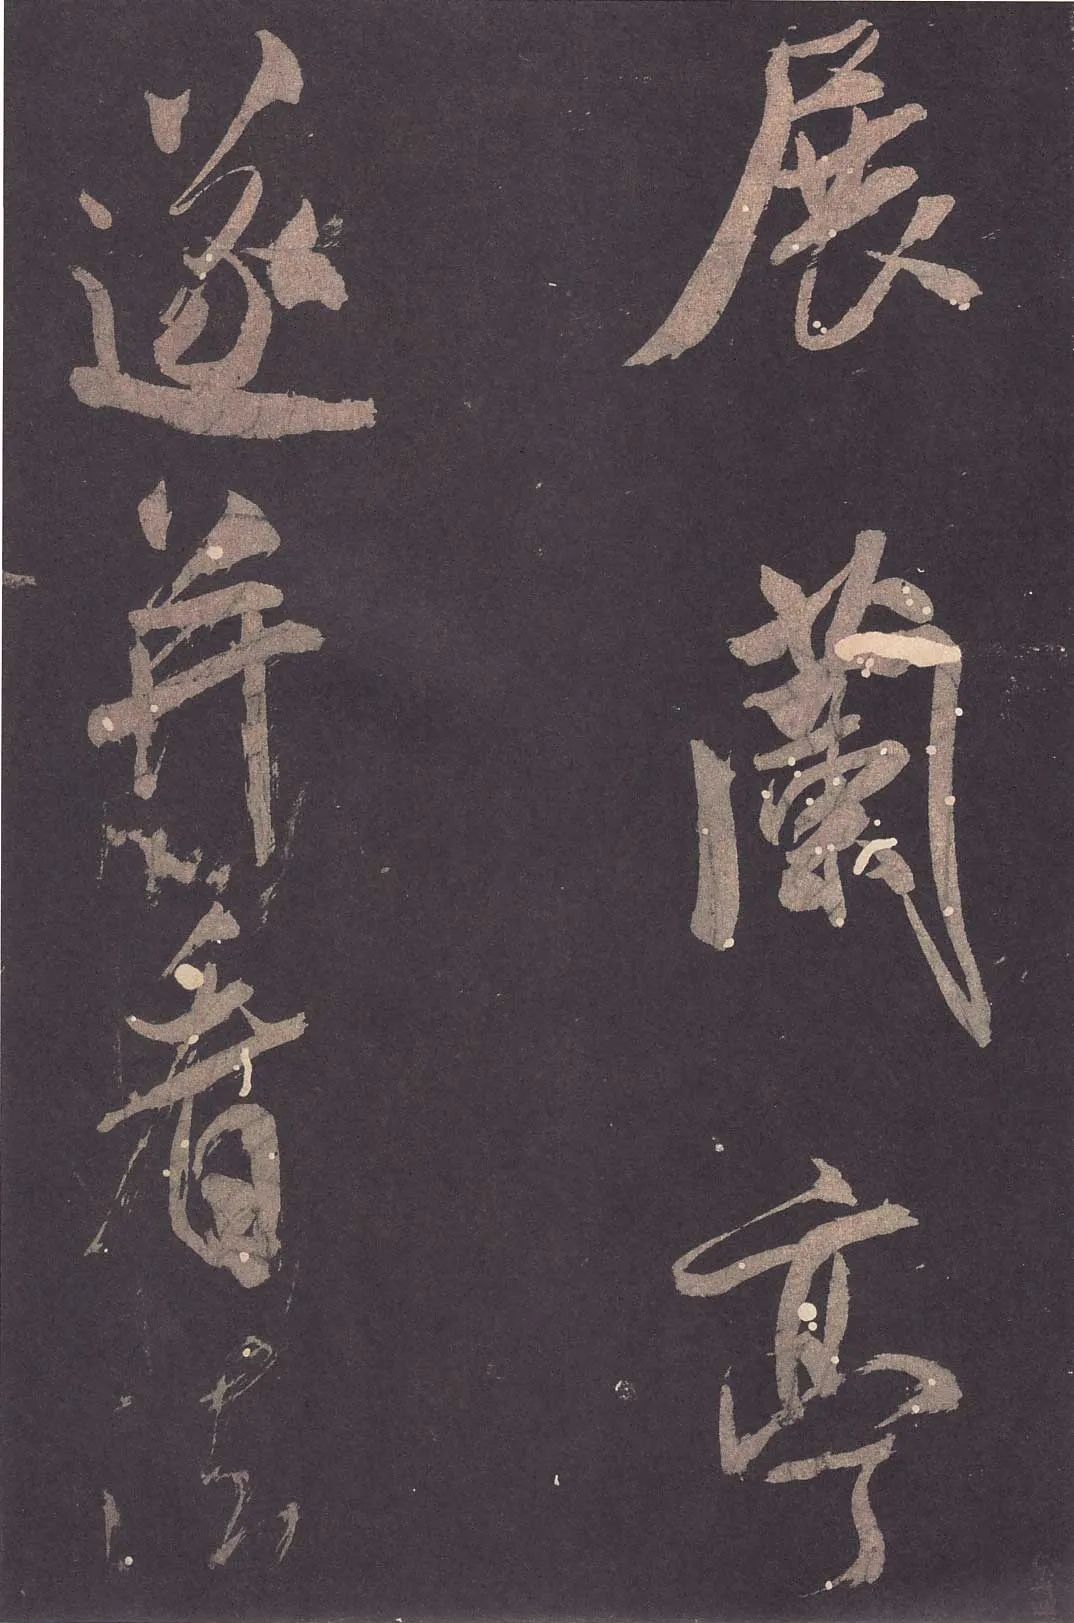 展蘭亭
遂并看法